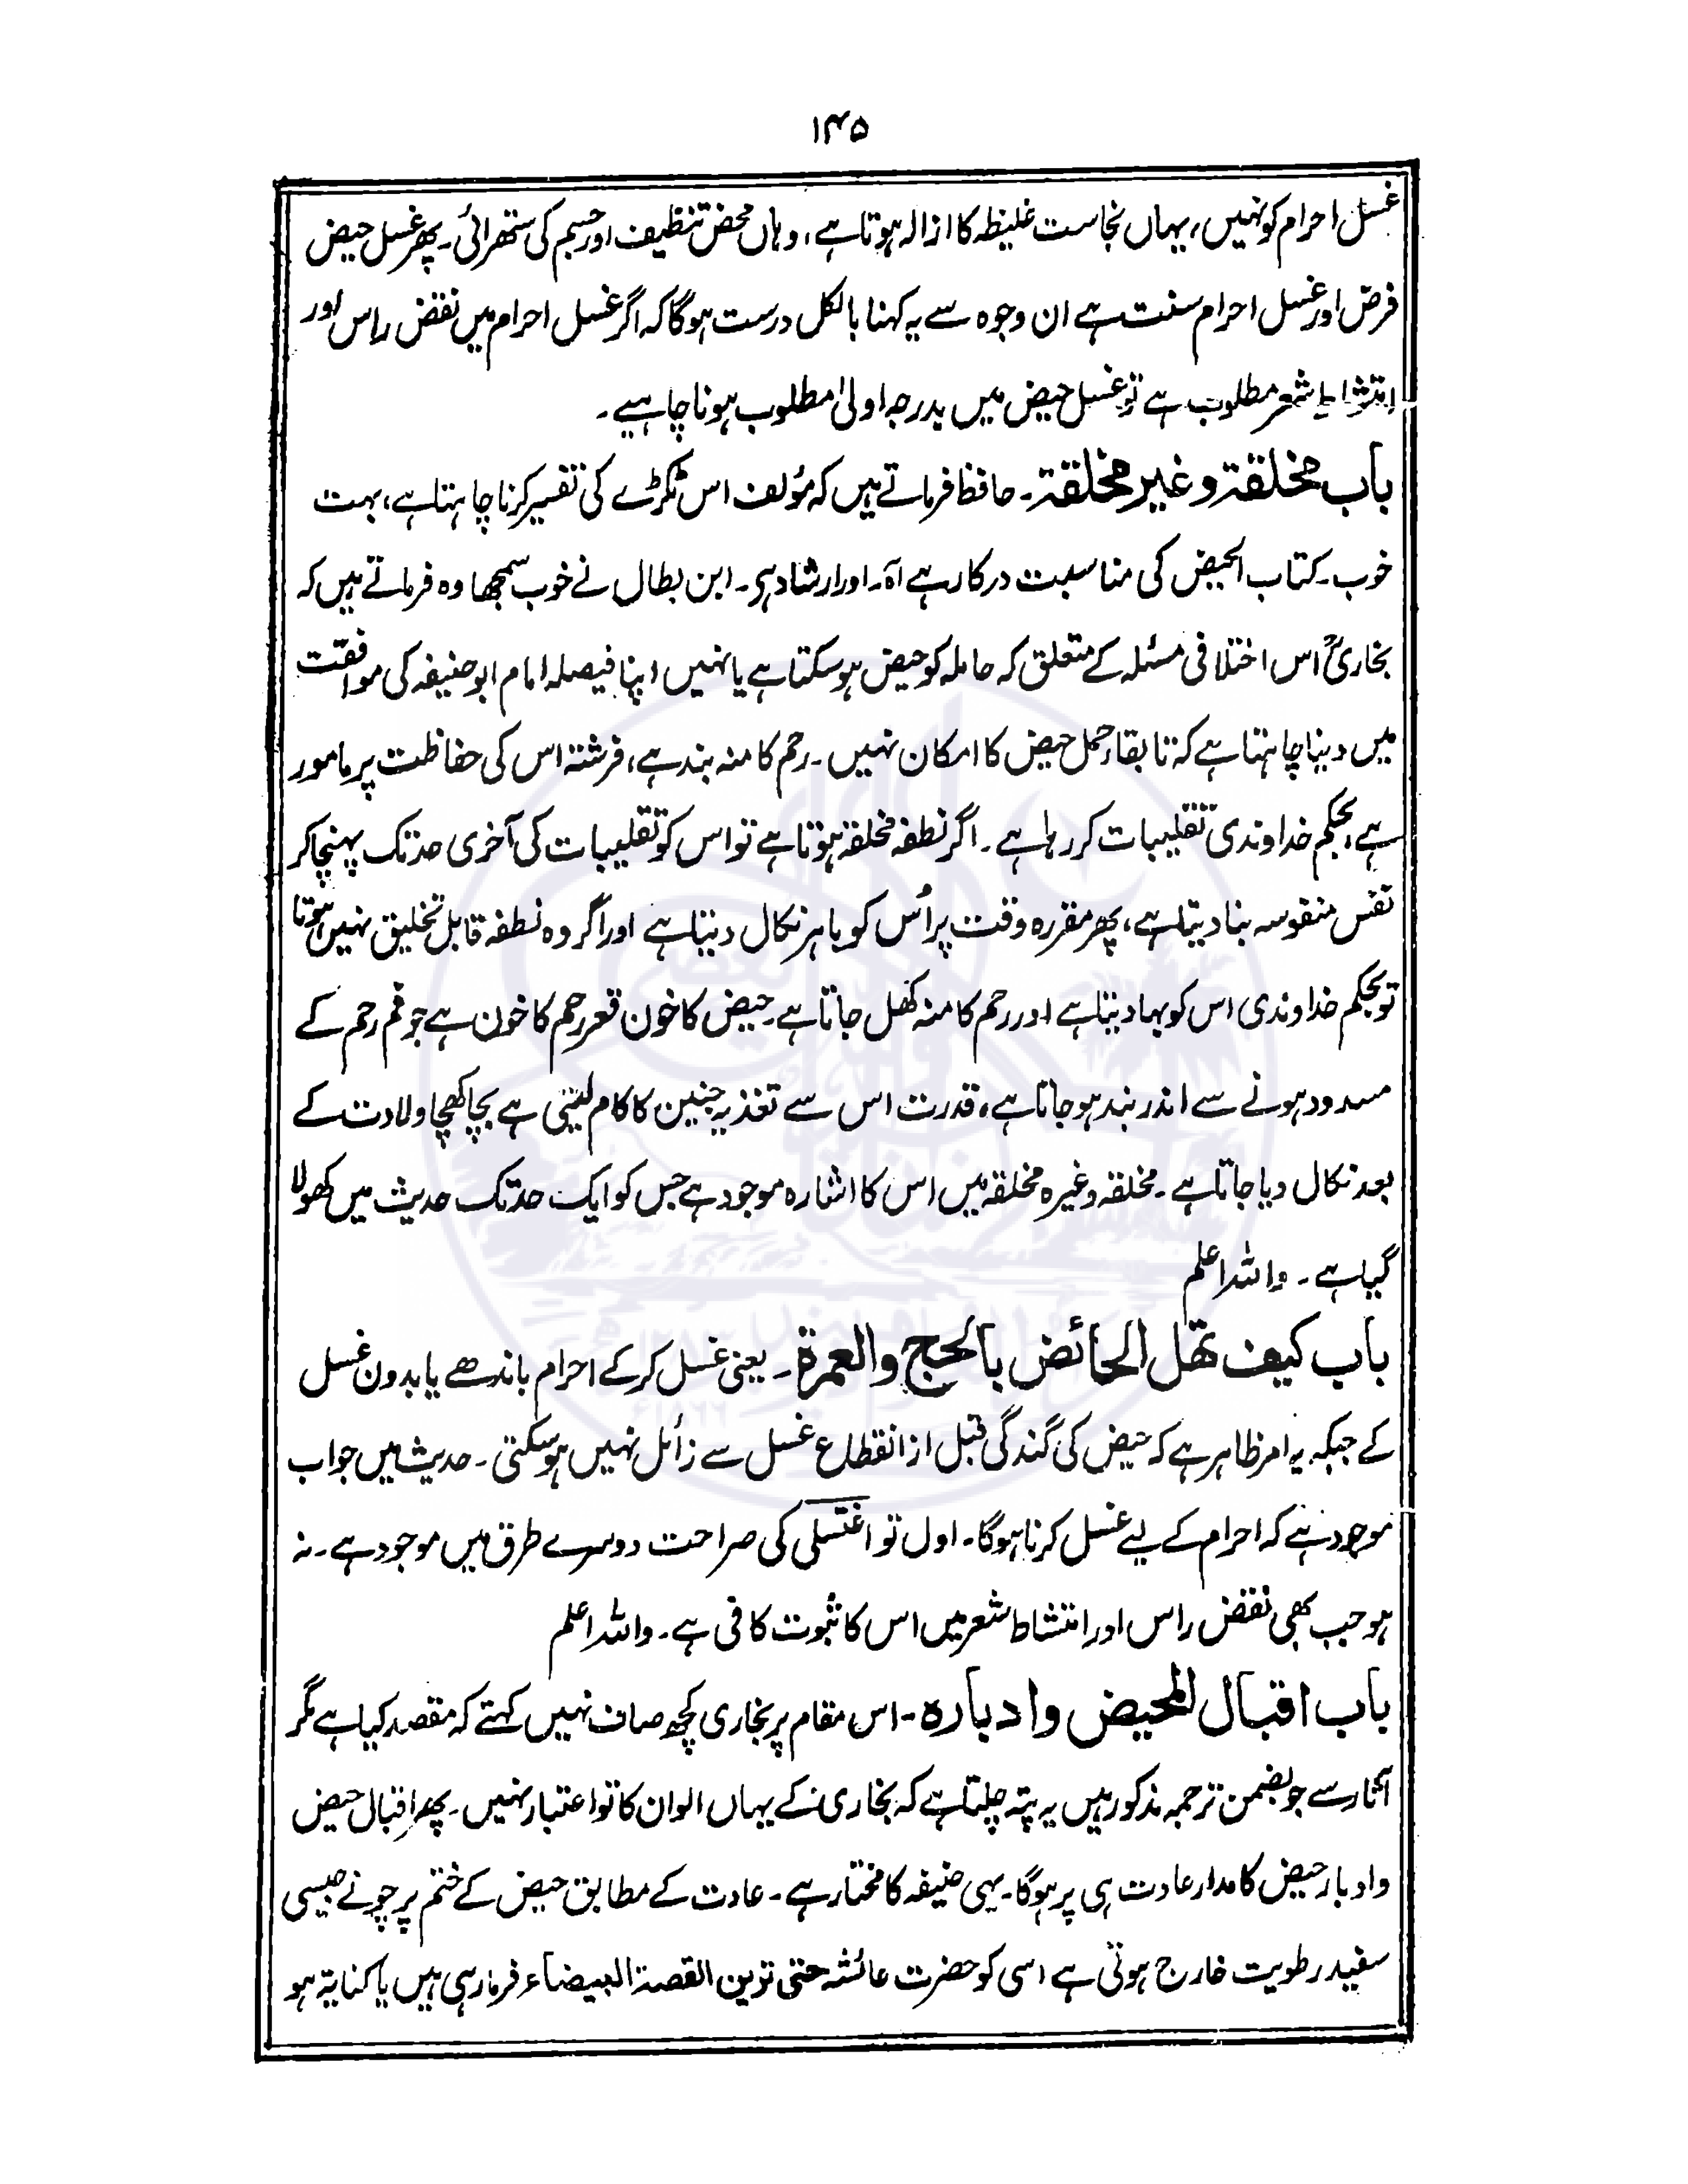 ۱۴۵
غسل احرام کو نہیں، یہاں نجاست غلیظہ کا ازالہ ہوتا ہے، وہاں محض تنظیف اور جسم کی ستھرائی۔ پھر غسل حیض
فرض اور غسل احرام سنت ہے ان وجوہ سے یہ کہنا بالکل درست ہوگا کہ اگر غسل احرام میں نقض راس اور
امتشاط شعر مطلوب ہے تو غسل حیض میں بدرجہ اولیٰ مطلوب ہونا چاہیے۔
باب مخلقۃ و غیر مخلقۃ۔ حافظ فرماتے ہیں کہ مؤلف اس ٹکڑے کی تفسیر کرنا چاہتا ہے، بہت
خوب۔ کتاب الحیض کی مناسبت درکار ہے آہ۔ اور ارشاد ہے۔ ابن بطال نے خوب سمجھا وہ فرماتے ہیں کہ
بخاریؒ اس اختلافی مسئلہ کے متعلق کہ حاملہ کو حیض ہو سکتا ہے یا نہیں اپنا فیصلہ امام ابو حنیفہ کی موافقت
میں دینا چاہتا ہے کہ تا بقاء حمل حیض کا امکان نہیں۔ رحم کا منہ بند ہے، فرشتہ اس کی حفاظت پر مامور
ہے، بحکم خداوندی تقلیبات کر رہا ہے۔ اگر نطفہ مخلقہ ہوتا ہے تو اس کو تقلیبات کی آخری حد تک پہنچا کر
نفس منفوسہ بنا دیتا ہے، پھر مقررہ وقت پر اُس کو باہر نکال دیتا ہے اور اگر وہ نطفہ قابل تخلیق نہیں ہوتا
تو بحکم خداوندی اس کو بہا دیتا ہے اور رحم کا منہ کھل جاتا ہے۔ حیض کا خون قعر رحم کا خون ہے جو فم رحم کے
مسدود ہونے سے اندر بند ہو جاتا ہے، قدرت اس سے تغذیہ جنین کا کام لیتی ہے بچا کھچا ولادت کے
بعد نکال دیا جاتا ہے۔ مخلقہ وغیرہ مخلقہ میں اس کا اشارہ موجود ہے جس کو ایک حد تک حدیث میں کھولا
گیا ہے۔ واللہ اعلم
باب کیف تھل الحائض بالحج والعمرۃ۔ یعنی غسل کر کے احرام باندھے یا بدون غسل
کے جبکہ یہ امر ظاہر ہے کہ حیض کی گندگی قبل از انقطاع غسل سے زائل نہیں ہو سکتی۔ حدیث میں جواب
موجود ہے کہ احرام کے لیے غسل کرنا ہوگا۔ اول تو اغتسلی کی صراحت دوسرے طرق میں موجود ہے۔ نہ
ہو جب بھی نقض راس اور امتشاط شعر میں اس کا ثبوت کافی ہے۔ واللہ اعلم
باب اقبال المحیض وادبارہ۔ اس مقام پر بخاری کچھ صاف نہیں کہتے کہ مقصد کیا ہے مگر
آثار سے جو بضمن ترجمہ مذکور ہیں یہ پتہ چلتا ہے کہ بخاریؒ کے یہاں الوان کا تو اعتبار نہیں۔ پھر اقبال حیض
وادبار حیض کا مدار عادت ہی پر ہوگا۔ یہی حنیفہ کا مختار ہے۔ عادت کے مطابق حیض کے ختم پر چونے جیسی
سفید رطوبت خارج ہوتی ہے اسی کو حضرت عائشہ حتی ترین القصۃ البیضاء فرما رہی ہیں یا کنایۃ ہو